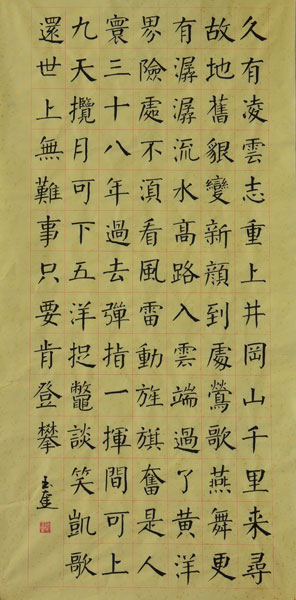 久有凌雲志重上井岡山千里来尋
故地舊貌變新顔到處鶯歌燕舞更
有潺潺流水高路入雲端過了黄洋
界險處不須看風雷動旌旗奮是人
寰三十八年過去彈指一揮間可上
九天攬月可下五洋捉鼈談笑凱歌
還世上無難事只要肯登攀